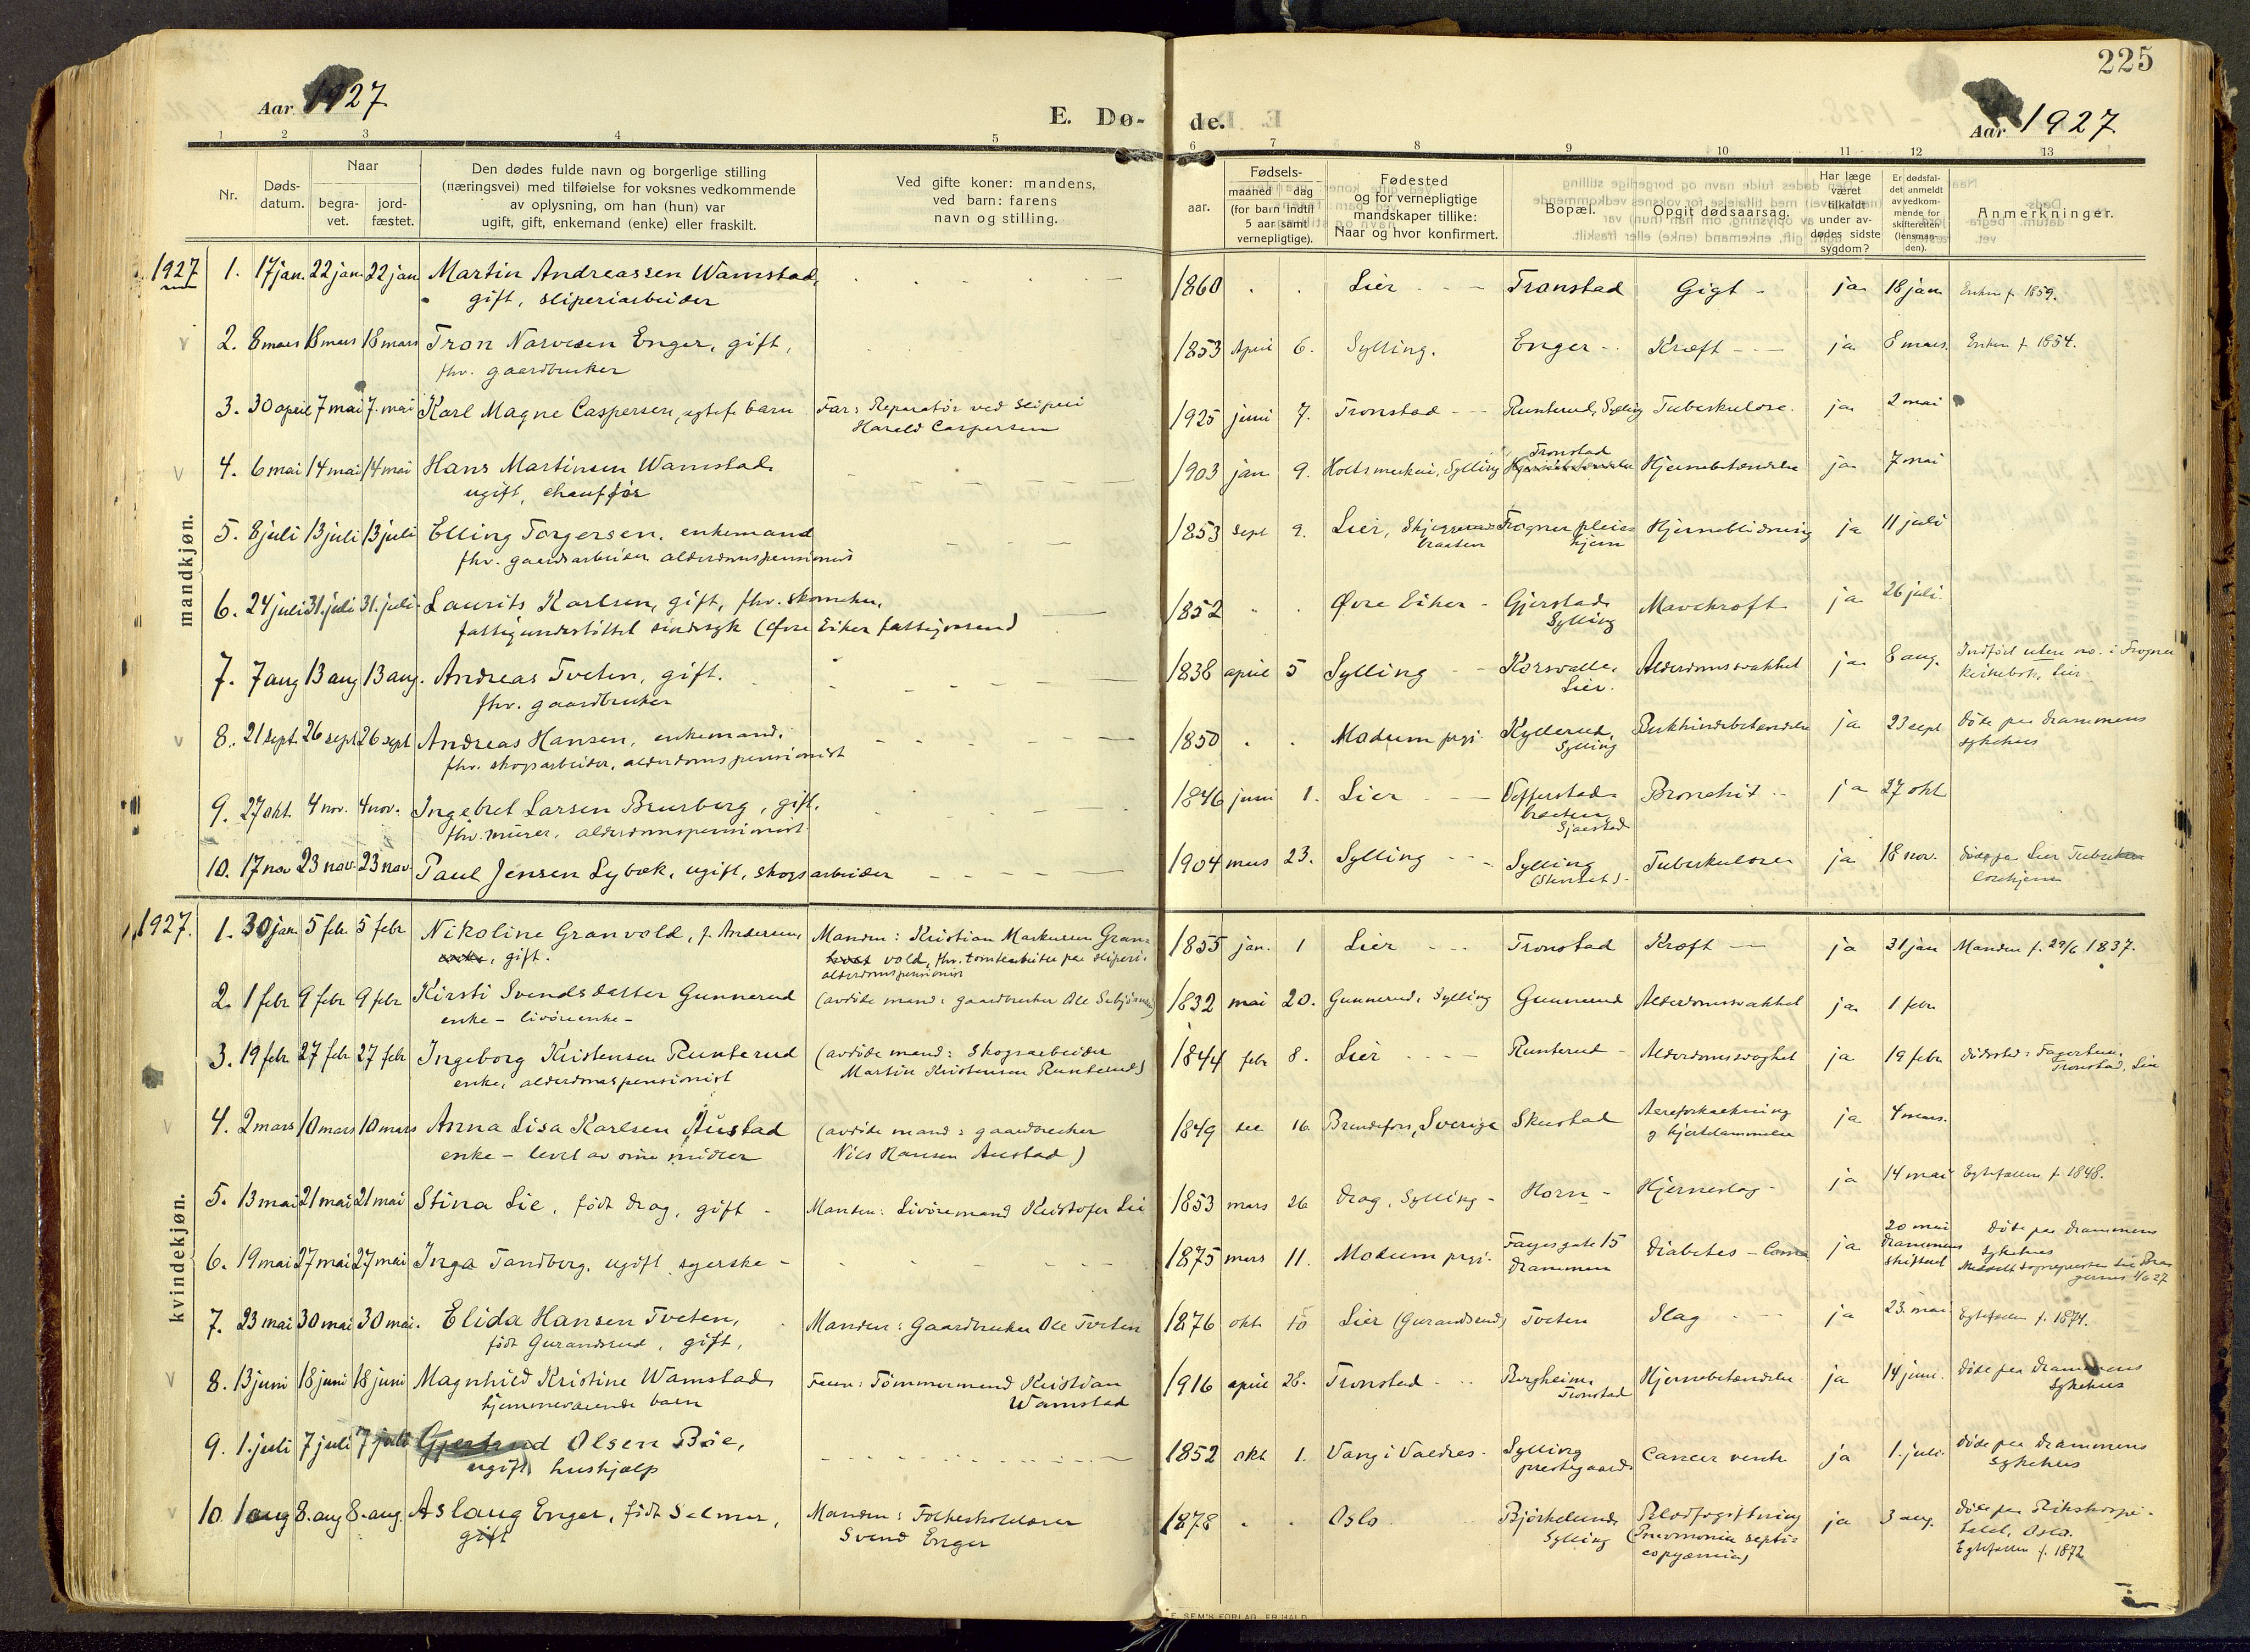 225
Aar 1927
E. Dø-
de.
Aar 1927
1 2 3 4 5 6 7 8 9 10 11 12 13
Nr.
Døds-
datum.
Naar
begra-
vet.
jord-
fæstet.
Den dødes fulde navn og borgerlige stilling
(næringsvei) med tilføielse for voksnes vedkommende
av oplysning, om han (hun) var
ugift, gift, enkemand (enke) eller fraskilt.
Ved gifte koner: mandens,
ved barn: farens
navn og stilling.
aar.
Fødsels-
maaned dag
(for barn indtil
5 aar samt
vernepligtige).
Fødested
og for vernepligtige
mandskaper tillike:
Naar og hvor konfirmert.
Bopæl.
Opgit dødsaarsag.
Har læge
været
tilkaldt
under av-
dødes sidste
sygdom?
Er dødsfal-
det anmeldt
av vedkom-
mende for
skifteretten
(lensman-
den).
Anmerkninger.
mandkjøn.
1927 1. 17 jan. 22 jan 22 jan Martin Andreassen Wamstad, 1860 Lier Tronstad Gigt ja 18 jan Enken f. 1859.
gift, sliperiarbeider
2. 8 mars 18 mars 18 mars Tron Narvesen Enger, gift, 1853 April 6. Sylling. Enger Kræft ja 8 mars. Enken f. 1854.
fhv. gaardbruker
3. 30 april 7 mai 7. mai Karl Magne Caspersen, egtef. barn Far: Reparatør ved sliperi 1925 juni 7. Tronstad Runterud, Sylling Tuberkulose. ja 2 mai
Harald Caspersen
4. 6 mai 14 mai 14 mai Hans Martinsen Wamstad 1903 jan 9. Sylling Tronstad Hjernebetændelse ja 7 mai
ugift, chauffør
5. 8 juli 13 juli 13 juli Elling Torgersen, enkemand 1853 sept 9. Lier, Frogner pleie- Hjerneblødning ja 11 juli
fhv. gaardsarbeider alderdomspensionist braaten hjem
6. 24 juli 31. juli 31. juli Laurits Karlsen, gift, fhv. skomaker, 1852 Øvre Eiker Gjerstad Mavekræft ja 26 juli
fattigunderstøttet sindssyk (Øvre Eiker fattigvæsend) Sylling
7. 7 aug 13 aug 13 aug. Andreas Tveten, gift. 1838 april 5 Sylling Korsvalle, Alderdomssvakhet ja 8 aug. Indført uten no. i Frogner
fhv. gaardbruker Lier. kirkebok, Lier.
8. 21 sept. 26 sept 26 sept Andreas Hansen, enkemand, 1850 Modum prgj. Kyllerud, ja 23 sept Døde paa Drammens
fhv. skogsarbeider, alderdomspensionist Sylling sykehus
9. 27 okt. 4 nov. 4 nov. Ingebret Larsen Brurberg, gift, 1846 juni 1. Lier Bronchit ja 27 okt
fhv. murer, alderdomspensionist braaten, Sjaastad
10. 17 nov 23 nov. 23 nov. Paul Jensen Lybæk, ugift, skogsarbeider 1904 mars 23. Sylling Sylling Tuberkulose ja 18 nov. Døde paa Lier Tuberku-
losehjem
kvindekjøn.
1927. 1. 30 jan 5 febr 5 febr Nikoline Granvold, f. Andersen, Manden: Kristian Markusen Gran- 1855 jan. 1 Lier Tronstad Kræft ja 31 jan Manden f. 29/6 1837.
enke, gift. vold, fhv. tomtearbeider paa sliperi.
alderdomspensionist
2. 1 febr 9 febr 9 febr Kirsti Svendsdatter Gunnerud (avdøde mand: gaardbruker Ole 1832 mai 20. Gunnerud, Sylling Gunnerud Alderdomssvakhet ja 1 febr
enke - livøreenke -
3. 19 febr 27 febr 27 febr Ingeborg Kristensen Runterud (avdøde mand: Skogsarbeider 1844 febr 8. Lier Runterud Alderdomssvaghet ja 19 febr Dødssted: Fagertun,
enke, alderdomspensionist Martin Kristensen Runterud) Tronstad, Lier
4. 2 mars 10 mars 10 mars Anna Lisa Karlsen Austad (avdøde mand: gaardbruker 1849 dec 16 Brundefors, Sverige Skustad Aareforkalkning ja 4 mars.
enke - levet av sine midler Nils Hansen Austad)
5. 13 mai 21 mai 21 mai Stina Lie, født Drag, gift Manden: Livøremand Kristofer Lie 1853 mars 26 Drag, Sylling Horn Hjerneslag ja 14 mai Egtefællen f. 1848.
6. 19 mai 27 mai 27 mai Inga Tandberg, ugift syerske 1875 mars 11. Modum prgj. Fayesgate 15 Diabetes - Coma ja 20 mai Døde paa Drammens
Drammen Drammens skifteret sykehus
7. 23 mai 30 mai 30 mai. Elida Hansen Tveten, Manden: Gaardbruker Ole Tveten 1876 okt 10 Lier (Gurandsrud) Tveten Slag ja 23. mai Egtefællen f. 1874.
født Gurandsrud, gift,
8. 13 juni 18 juni 18 juni Magnhild Kristine Wamstad Faren: Tømmermand Kristian 1916 april 28. Tronstad Borgheim, Hjernebetændelse ja 14 juni. Døde paa Drammens
hjemmeværende barn Wamstad Tronstad sykehus
9. 1. juli 7 juli 7 juli Gjertrud Olsen Bøe, 1852 okt 1. Vang i Valdres Sylling Cancer ventr. ja 1. juli. Døde paa Drammens
ugift, hushjælp prestegaard sykehus
10. 1 aug 8. aug 8. aug. Aslaug Enger, født Selmer, Manden: Folkeskolelærer 1878 Oslo Bjørkelund, Blodforgiftning ja 3 aug. Døde paa Rikshospi-
gift Svend Enger Sylling (Pneumonia septi- talet, Oslo.
copyæmia) Egtefællen f. 1872